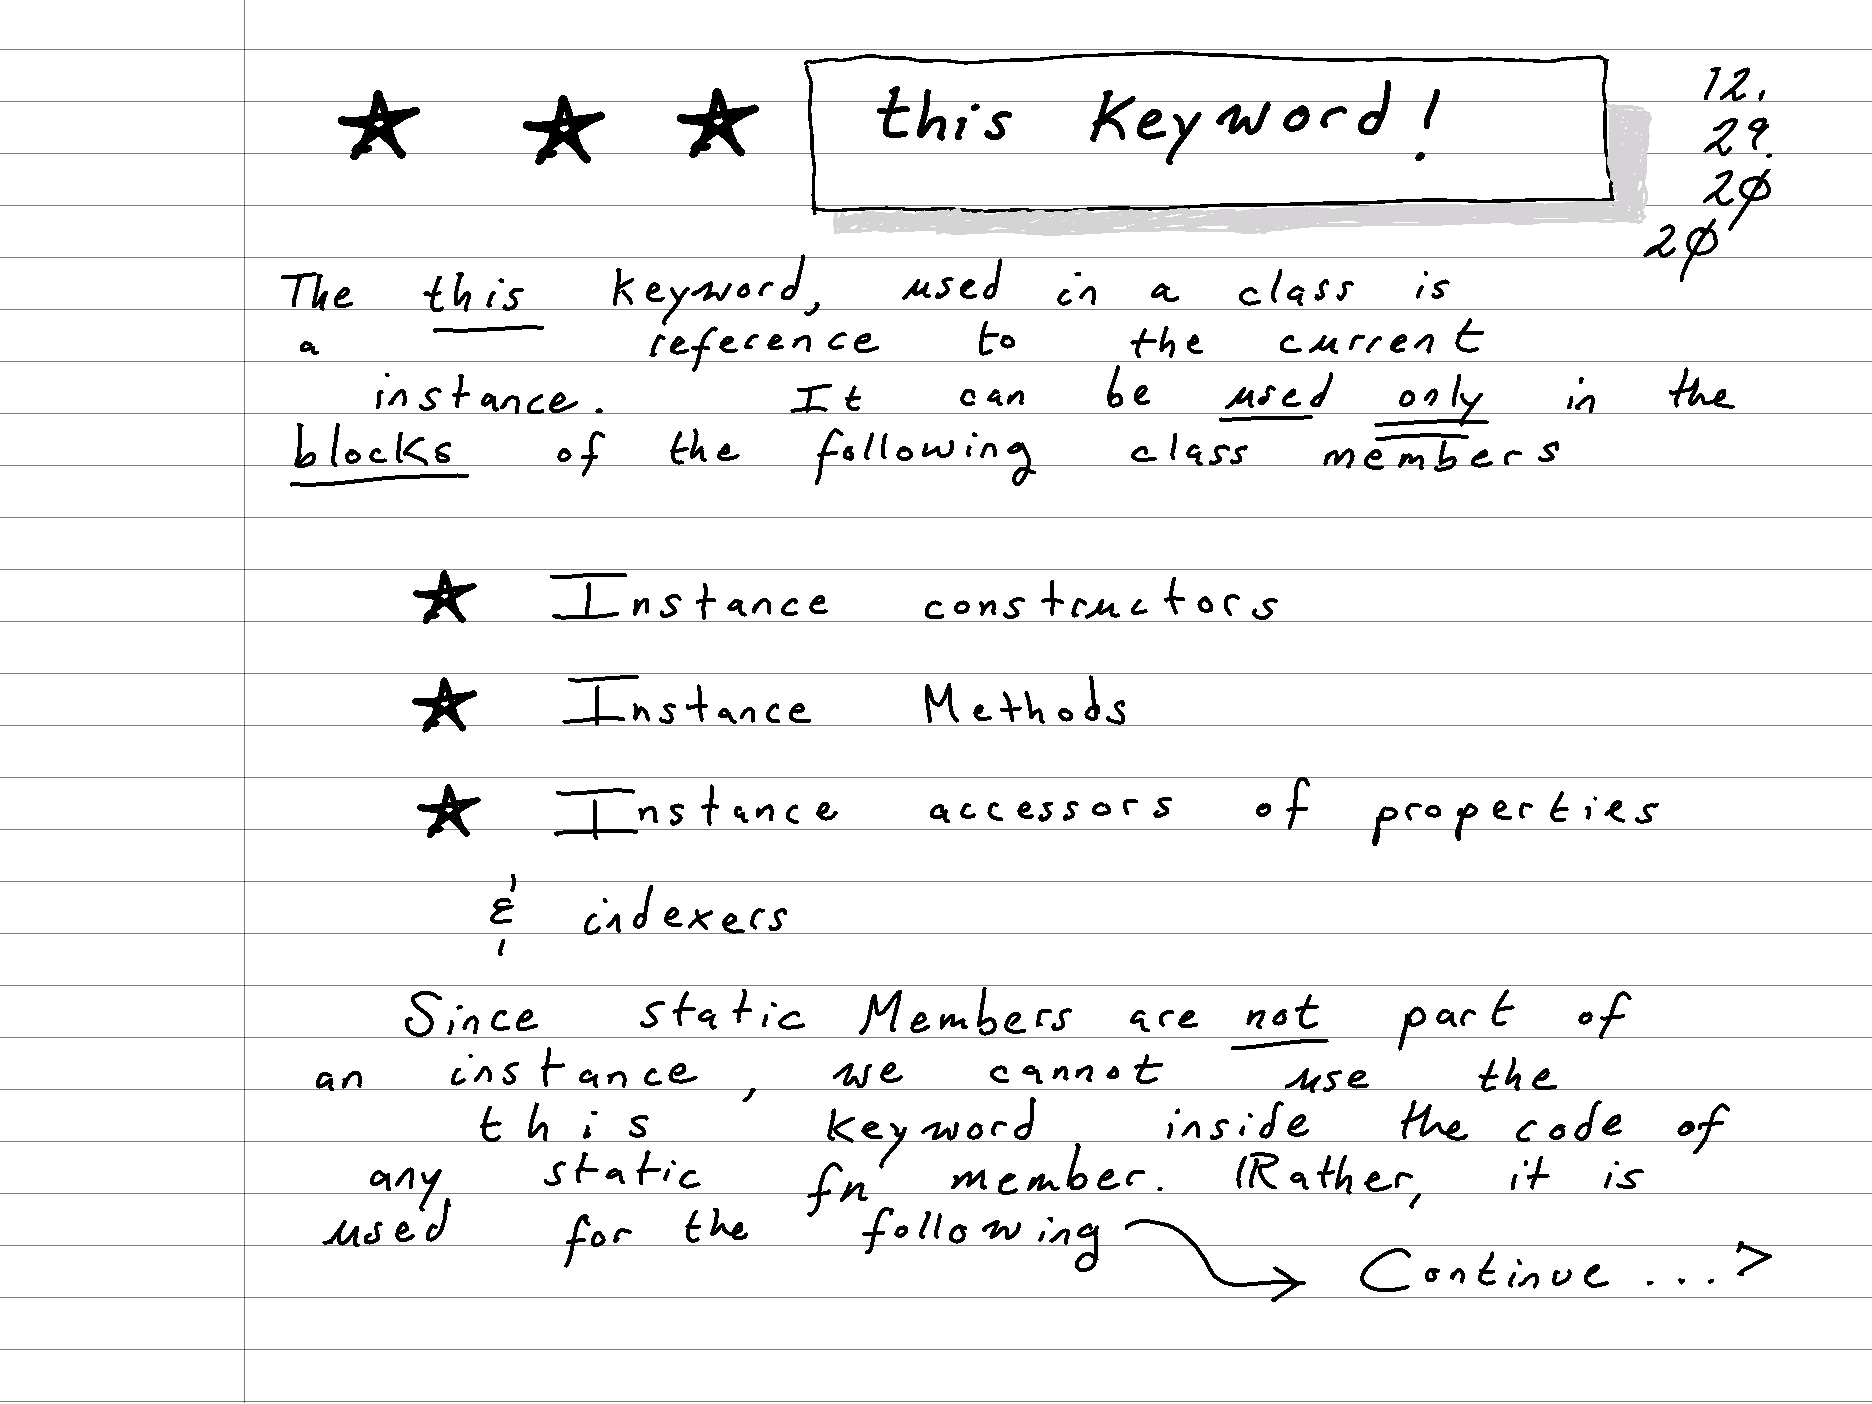 this Keyword!
12.
29.
20
20
The this keyword, used in a class is
a reference to the current
instance. It can be used only in the
blocks of the following class members
Instance constructors
Instance Methods
Instance accessors of properties
& indexers
Since static Members are not part of
an instance, we cannot use the
this keyword inside the code of
any static fn member. Rather, it is
used for the following
Continue ...>